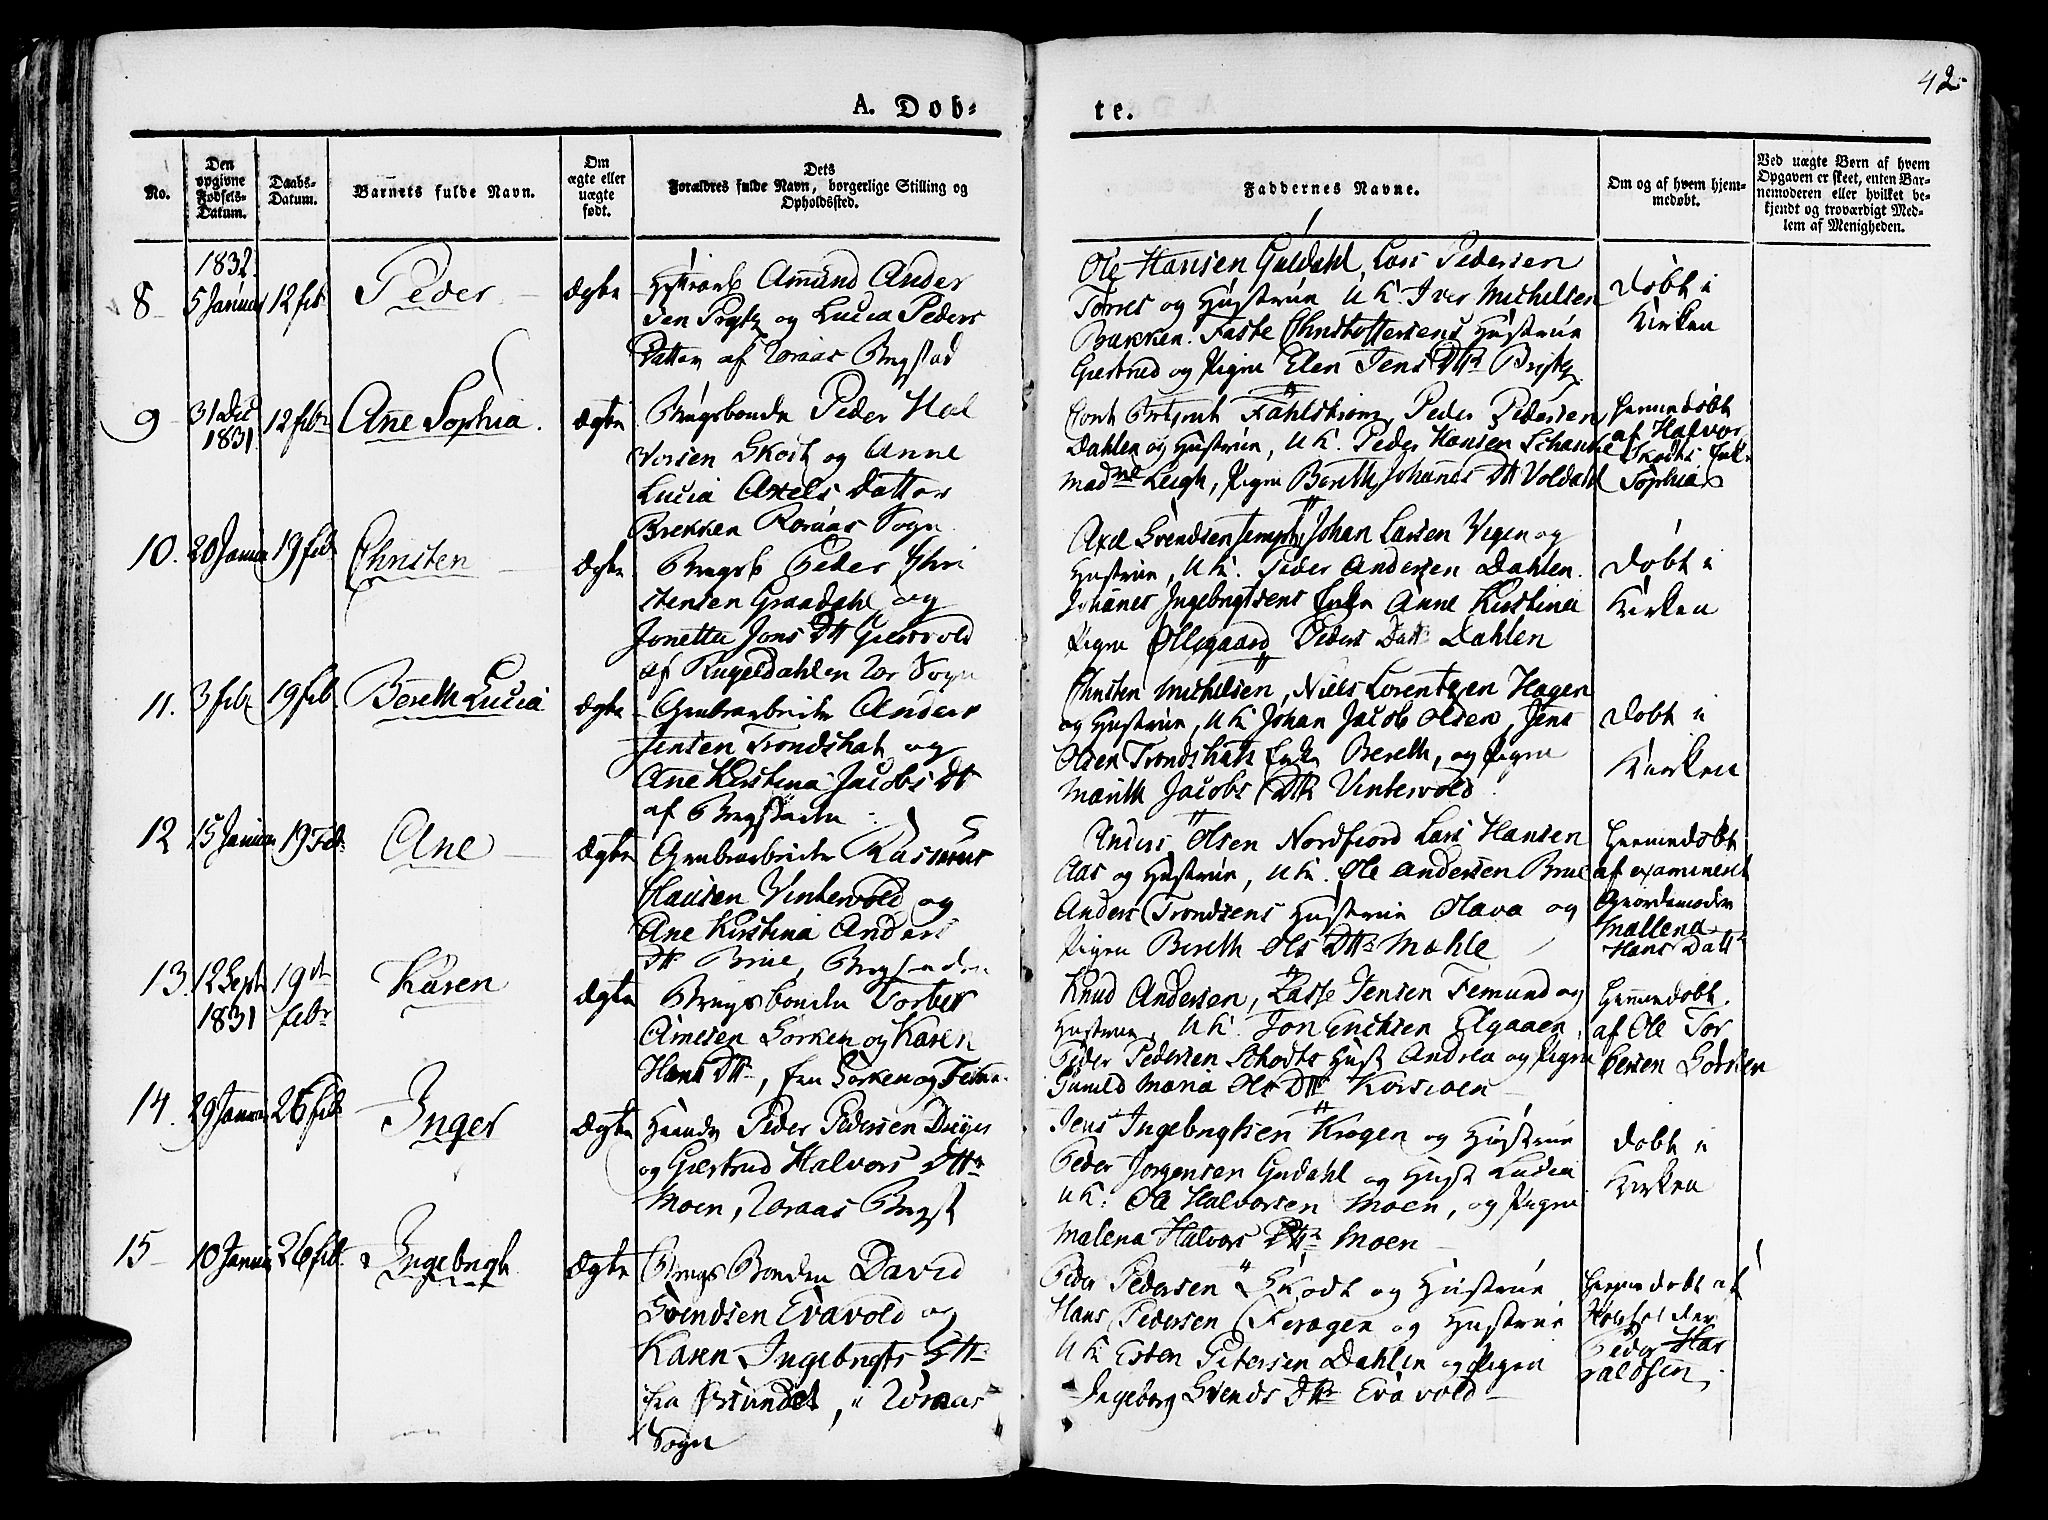 42
A. Døb-
te.
No.
Den opgivne Fødsels-Datum.
Daabs-Datum.
Barnets fulde Navn.
Om ægte eller uægte født.
Dets Forældres fulde Navn, borgerlige Stilling og Opholdssted.
Faddernes Navne.
Om og af hvem hjemmedøbt.
Ved uægte Børn af hvem Opgaven er skeet, enten Barnemoderen eller hvilket bekjendt og troværdigt Medlem af Menigheden.
1832.
8 5 Januar 12 feb Peder Ægte
Amund Ander
sen og Lucia Peders
Datter af Røraas Bergstad
Ole Hansen Guldahl, Lars Pedersen
Torres og Hustrue U K. Iver Michelsen
Bakken. Faste Christoffersens Hustrue
Giertrud og Pigen Elen Jens Dtr
Døbt i
Kirken
9 31 Dec 1831 12 febr Ane Sophia. Ægte
Brugsbonde Peder Hal
vorsen Skott og Anne
Lucia Axels Datter
Brekken Røraas Sogn
Fahlstrøm, Peder Pedersen
Dahlen og Hustrue, U K. Peder Hansen Schanke
Madme Leigh, Pigen Bereth Johannes Dtr Voldahl
Hjemmedøbt
af Halvor
Skotts Enke
Sophia
10. 20 Januar 19 feb Christen Ægte
Brugsb Peder Chri
stensen Graadahl og
Jonetta Jons Dtr Giervold
af Rugeldahlen Rør Sogn
Axel Svendsen Tempth, Johan Larsen Vigen og
Hustrue, U K. Peder Andersen Dahlen.
Johannes Ingebrigtsens Enke Anne Kirstina
Pigen Øllegaard Peders Datt Dahlen
Døbt i
Kirken
11. 3 feb 19 feb Bereth Lucia Ægte
Grubearbeider Anders
Jensen Trondshat og
Ane Kirstina Jacobs Dtr
af Bergstaden
Christen Michelsen, Niels Lorentzen Hagen
og Hustrue, U K Johan Jacob Olsen, Jens
Olsen Trondshats Enke Bereth, og Pigen
Marith Jacobs Dtr Vintervold.
Døbt i
Kirken
12 15 Januar 19 Feb Ane Ægte
Grubearbeider Rasmus
Hansen Vintervold og
Ane Kirstina Anders
Dtr Brue, Bergstaden
Anders Olsen Nordfiord Lars Hansen
Aas og Hustrue, U K. Ole Andersen Brue
Anders Trondsens Hustrue Olava og
Pigen Bereth Ols Dtr Mæhle
Hjemmedøbt
af examineret
Giordemoder
Mallena
Hans Datt
13. 12 Sept 1831 19de febr Karen Ægte
Brugsbonde Torber
Arnesen Sorken og Karen
Hans Dtr, fra Sorken og Femu
Knud Andersen, Lasse Jensen Femund og
Hustrue, U K. Jon Erichsen Elgaaen,
Peder Pedersen Schotts Hust Andrea og Pigen
Gunild Maria Ols Dtr Korsmoen
Hjemmedøbt.
af Ole Tor
bersen Sorken
14. 29 Januar 26 feb Inger Ægte
Haandv Peder Pedersen
og Giertrud Halvors Dtr
Moen, Røraas Bergst
Jens Ingebrigtsen Krogen og Hustrue
Peder Jørgensen Gudahl og Hust Lucia
U K. Ole Halvorsen Moen, og Pigen
Malena Halvors Dtr Moen
Døbt i
Kirken
15 10 Januar 26 feb. Ingebrigt Ægte
Brugs Bonden David
Svendsen Evavold og
Karen Ingebrigts Dtr
fra Brsundet, i Røraas
Sogn
Peder Pedersen Skott og Hustrue
Hans Pedersen Feragen og Hustrue
U K Esten Petersen Dahlen og Pigen
Ingeborg Svends Dtr Evavold
Hjemmedøbt af
Peder Har
raldsen